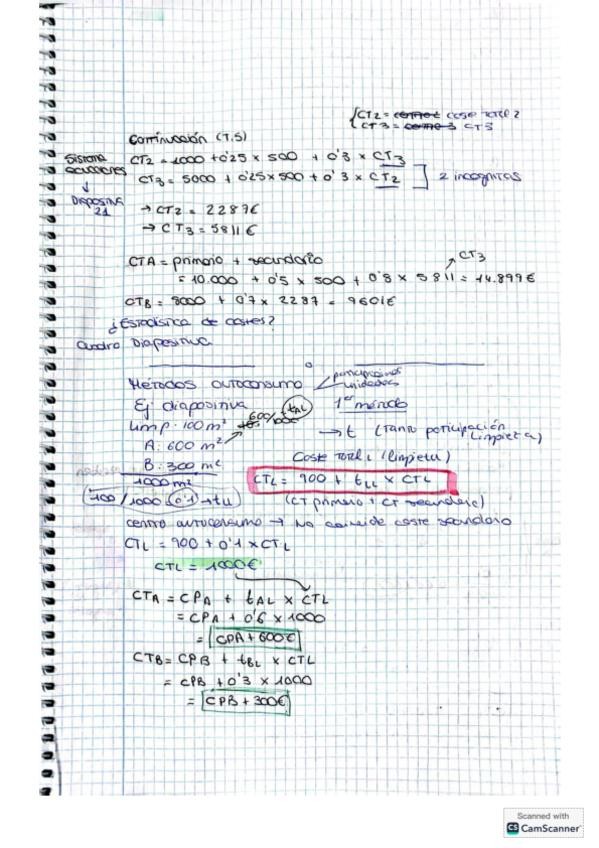 {CT2 = coste total 2
CT3 = CT3
Continuación (T.5)
Sistema ecuaciones
↓
Diapositiva 21
CT2 = 1000 + 0'25 × 500 + 0'3 × CT3
CT3 = 5000 + 0'25 × 500 + 0'3 × CT2 ] 2 incognitas
→ CT2 = 2287€
→ CT3 = 5811€
CTA = primario + secundario
CT3
= 10.000 + 0'5 × 500 + 0'8 × 5811 = 14.899€
CTB = 8000 + 0'7 × 2287 = 9601€
¿Estadística de costes?
Cuadro Diapositiva
Métodos autoconsumo
participaciones
unidades
Ej diapositiva
1er método
Limp · 100 m²
600/1000
tAL
A: 600 m²
→ t (Tanto participación Limpieza)
B: 300 m²
1000 m²
Coste Total L (limpieza)
CTL = 900 + tLL × CTL
100/1000 (0'1) → tLL
(CT primario + CT secundario)
centro autoconsumo → No coincide coste secundario
CTL = 900 + 0'1 × CTL
CTL = 1000€
CTA = CPA + tAL × CTL
= CPA + 0'6 × 1000
= CPA + 600€
CTB = CPB + tBL × CTL
= CPB + 0'3 × 1000
= CPB + 300€
Scanned with
CS CamScanner